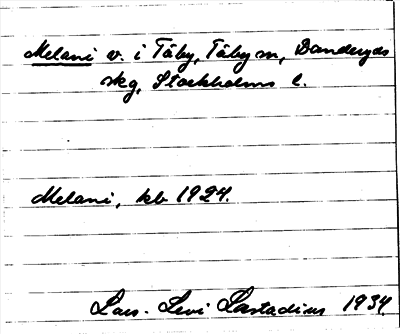 Melani v. i Täby, Täby sn, Danderyds
skg, Stockholms l.
Melani, kb 1924.
Lars-Levi Læstadius 1934.